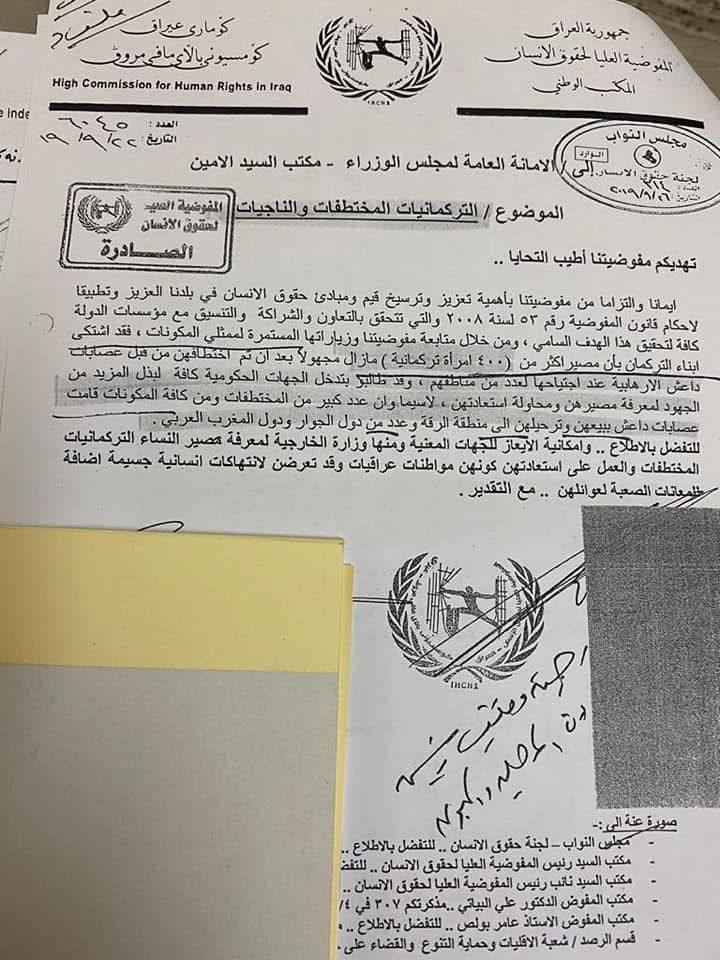 جمهورية العراق
المفوضية العليا لحقوق الانسان
المكتب الوطني
كۆماری عیراق
كۆمسیۆنی بالآی مافی مرۆڤ
High Commission for Human Rights in Iraq
IHCHR
العدد: ٦٠٤٥
التاريخ: ١٩/٩/٢٢
مجلس النواب
لجنة حقوق الانسان
الوارد
العدد:
التاريخ: ٢٠١٩/٩/٢٦
إلى / الامانة العامة لمجلس الوزراء - مكتب السيد الامين
المفوضية العليا
لحقوق الانسان
الصادرة
الموضوع / التركمانيات المختطفات والناجيات
تهديكم مفوضيتنا أطيب التحايا ..
ايمانا والتزاما من مفوضيتنا بأهمية تعزيز وترسيخ قيم ومبادئ حقوق الانسان في بلدنا العزيز وتطبيقا
لاحكام قانون المفوضية رقم ٥٣ لسنة ٢٠٠٨ والتي تتحقق بالتعاون والشراكة والتنسيق مع مؤسسات الدولة
كافة لتحقيق هذا الهدف السامي ، ومن خلال متابعة مفوضيتنا وزياراتها المستمرة لممثلي المكونات ، فقد اشتكى
ابناء التركمان بأن مصير اكثر من (٤٠٠ امرأة تركمانية) مازال مجهولاً بعد ان تم اختطافهن من قبل عصابات
داعش الارهابية عند اجتياحها لعدد من مناطقهم ، وقد طالبو بتدخل الجهات الحكومية كافة لبذل المزيد من
الجهود لمعرفة مصيرهن ومحاولة استعادتهن ، لاسيما وان عدد كبير من المختطفات ومن كافة المكونات قامت
عصابات داعش ببيعهن وترحيلهن الى منطقة الرقة وعدد من دول الجوار ودول المغرب العربي .
للتفضل بالاطلاع .. وامكانية الايعاز للجهات المعنية ومنها وزارة الخارجية لمعرفة مصير النساء التركمانيات
المختطفات والعمل على استعادتهن كونهن مواطنات عراقيات وقد تعرضن لانتهاكات انسانية جسيمة اضافة
للمعانات الصعبة لعوائلهن .. مع التقدير .
IHCHR
صورة عنه الى:-
- مجلس النواب – لجنة حقوق الانسان .. للتفضل بالاطلاع ..
- مكتب السيد رئيس المفوضية العليا لحقوق الانسان .. للتفض
- مكتب السيد نائب رئيس المفوضية العليا لحقوق الانسان ..
- مكتب المفوض الدكتور علي البياتي ..مذكرتكم ٣٠٧ في ٤/
- مكتب المفوض الاستاذ عامر بولص .. للتفضل بالاطلاع ..
- قسم الرصد / شعبة الاقليات وحماية التنوع والقضاء على